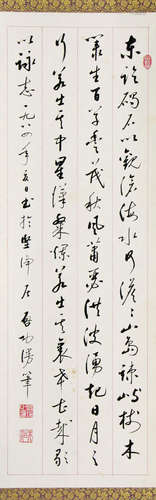 東臨碣石以觀滄海水何澹〻山島竦峙樹木
叢生百草豐茂秋風蕭瑟洪波湧起日月之
行若出其中星漢粲爛若出其裏幸甚至哉歌
以詠志一九八年夏日書於堅淨居啟功漫筆